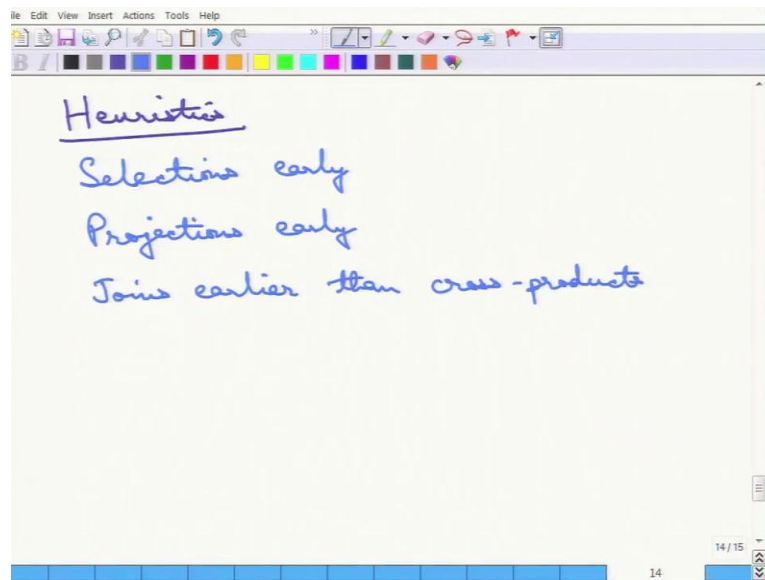 ile Edit View Insert Actions Tools Help
Heuristics
Selections early
Projections early
Joins earlier than cross-products
14 / 15
14